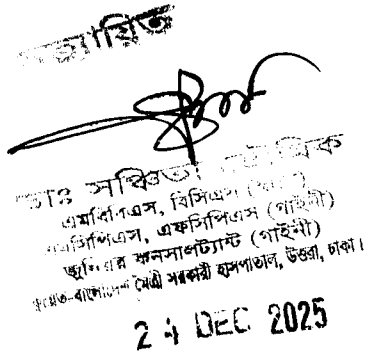 সত্যায়িত
ডাঃ সঞ্চিতা ভৌমিক
এমবিবিএস, বিসিএস (স্বাস্থ্য)
এমসিপিএস, এফসিপিএস (গাইনী)
জুনিয়র কনসালট্যান্ট (গাইনী)
কুয়েত-বাংলাদেশ মৈত্রী সরকারী হাসপাতাল, উত্তরা, ঢাকা।
24 DEC 2025